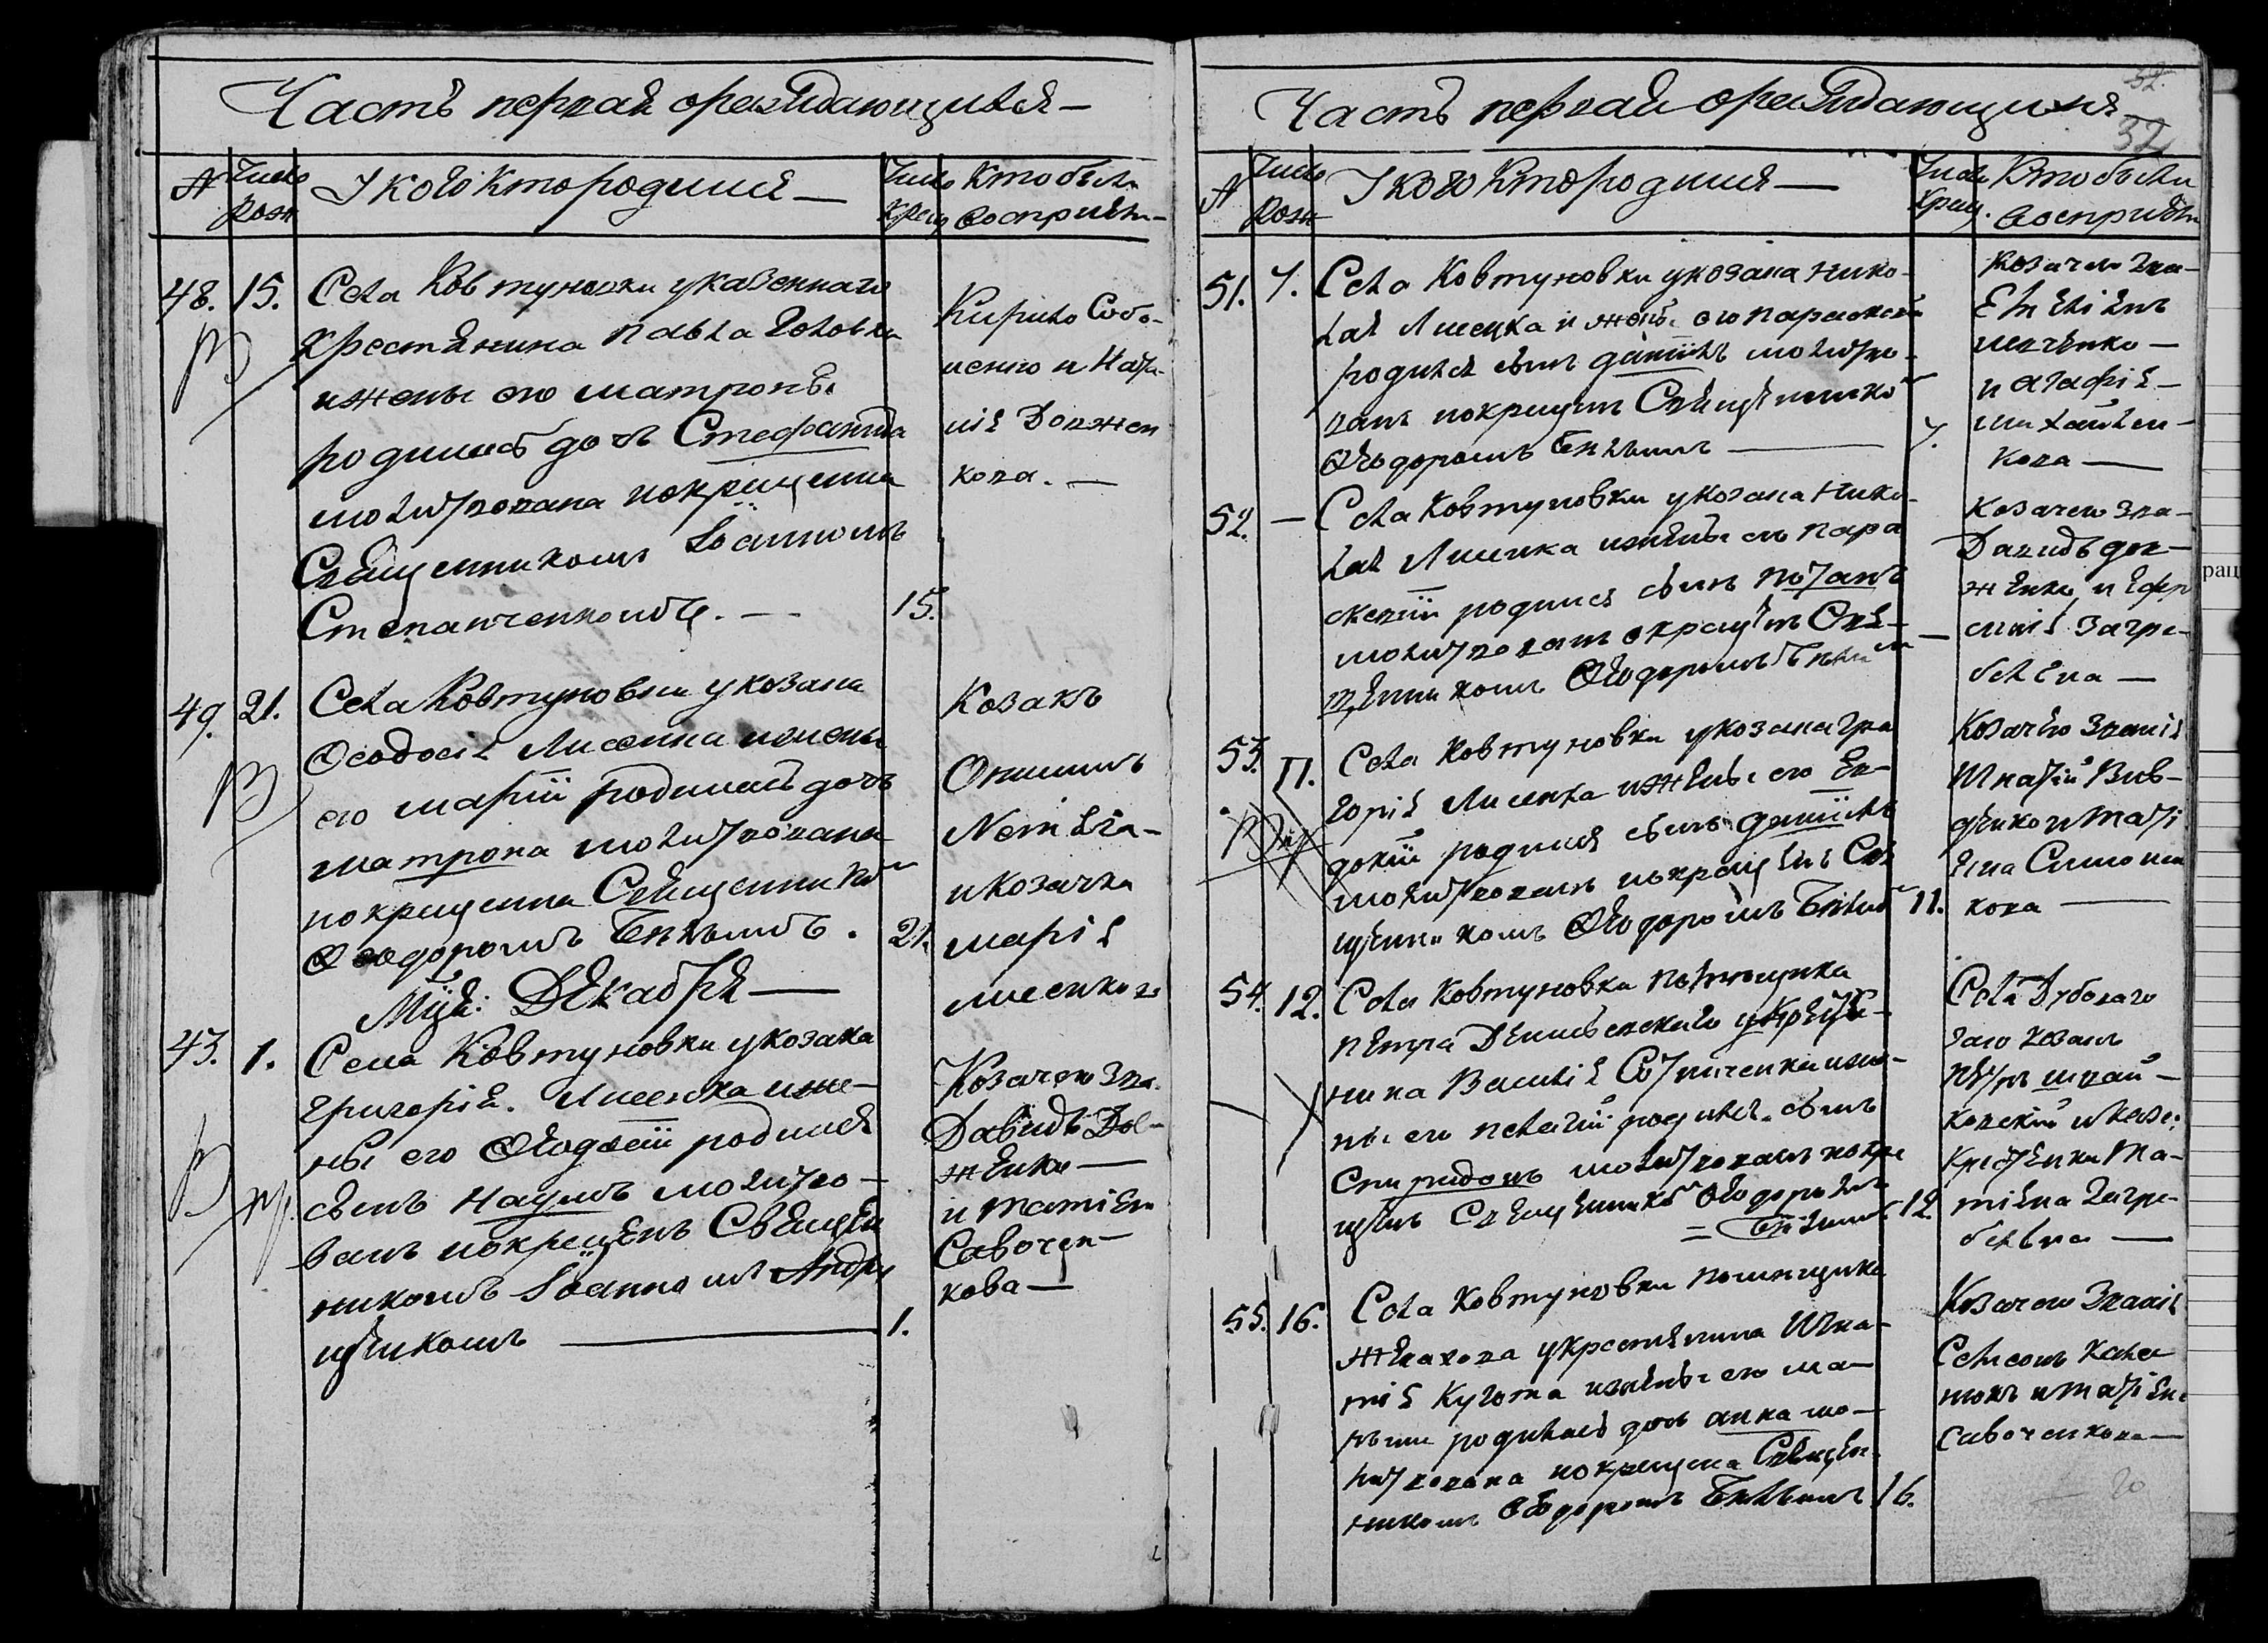 Часть первая ораждающихся —
№
Число рож
У кого кто родился —
Число крещ
Кто были восприем —
48.
15.
Села Ковтуновки у казеннаго
крестянина Павла Головка
и жены его матроны
родилась дочь Стефанида
молитвована и окрещенна
Священникомъ Іоанномъ
Степанченкомъ. —
15.
Кирило Собо-
иенко и Ната-
ліѣ Должен
кова. —
49.
21.
Села Ковтуновки у козака
Феодосія Лисенка и жены
его маріи родилась дочь
матрона молитвована
и окрещенна Священнико
Феодоромъ Бѣлымъ.
21.
Козакъ
Онисимъ
и козачка
маріѣ
лисенкова
Мцъ: Декабря —
43.
1.
Села Ковтуновки у козака
григоріѣ. Лисенка и же-
ны его Феодосіи родился
сынъ Наумъ молитво-
ванъ и окрещенъ Священ
никомъ Іоанномъ Андри
щенкомъ —
1.
Козачего зва.
Давидъ Дол-
женко —
и татіена
Савочен-
кова —
Часть первая ораждающихся
32
32
№
Число рож
У кого кто родился —
Число крещ.
Кто были восприем
51.
7.
Села Ковтуновки у козака Нико-
лаѣ Лисенка и жены его параскевіи
родился сынъ даніилъ молитво-
ванъ и окрещенъ Священнико
Феодоромъ Бѣлымъ —
7.
Козачего зва-
Емеліенъ
шевченко —
и агафіѣ —
михайлен-
кова —
52.
—
Села Ковтуновки у козака Нико-
лаѣ Лисенка и жены его пара
скевіи родился сынъ потапъ
молитвованъ и окрещенъ Свѣ-
щенникомъ Феодоромъ Бѣлым
—
Козачего зва-
Давидъ дол-
женко и Ефро
синіѣ Загре-
белена —
53.
11.
Села Ковтуновки у козака гри
горіѣ Лисенка и жены его Ев-
докіи родился сынъ даніилъ
молитвованъ и окрещенъ Свѣ
щенникомъ Феодоромъ Бѣлым
11.
Козачего званіѣ
Игнатій Вив-
денко и татіе
ена Симонен
кова —
54.
12.
Села Ковтуновки помющика
петра Денисевскаго у крестя-
нина Василіѣ Сотниченка и же-
ны его пелагіи родился сынъ
Спиридонъ молитвованъ и окре
щенъ Священнико Феодоромъ
= Бѣлымъ
12.
Села Дубоваго
гаю козакъ
петръ швай-
ковскій и казен:
крестенка та-
тіена загре-
белвна —
55.
16.
Села Ковтуновки помищика
Желахова у крестенина Игна-
тіѣ Кугота и жены его ма-
рыни родилась дочь анна мо-
литвована и окрещена Священ-
никомъ Феодоромъ Бѣлымъ
16.
Козачего званіѣ
Семеонъ кале
никъ и татіена
Савоченкова —